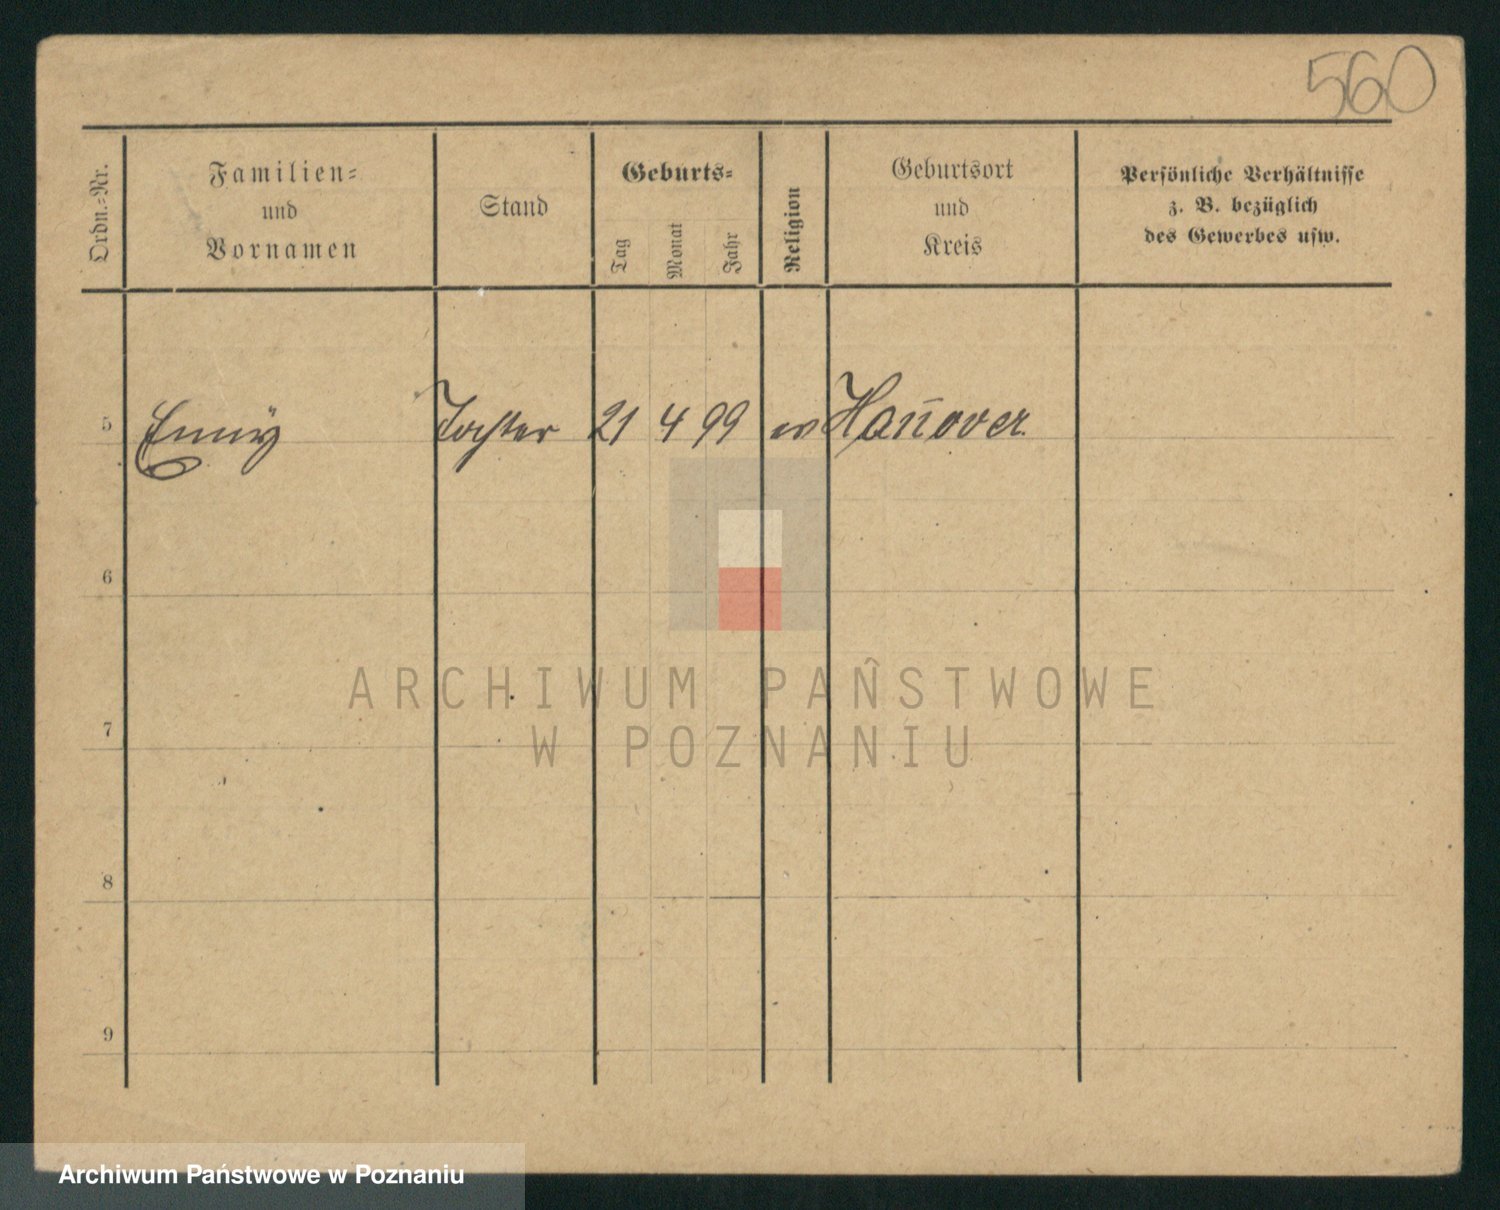 560
Ordn.-Nr.
Familien-
und
Vornamen
Stand
Geburts-
Tag
Monat
Jahr
Religion
Geburtsort
und
Kreis
Persönliche Verhältnisse
z. B. bezüglich
des Gewerbes usw.
5 Emmÿ Tochter 21 4 99 ev Han̄over
6
7
8
9
ARCHIWUM PAŃSTWOWE
W POZNANIU
Archiwum Państwowe w Poznaniu